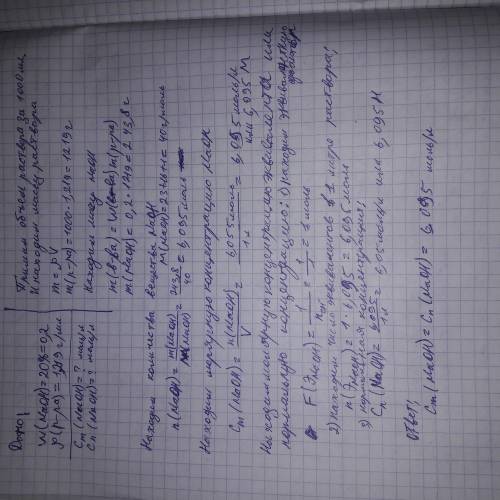 Дано:
W(NaOH)=20%=0,2
ρ(р-ра)=1,219 г/мл
Cm(NaOH)=? моль/л
Cn(NaOH)=? моль/л
Примем объем раствора за 1000 мл,
и находим массу раствора
m=ρV
m(р-ра)=1000·1,219=1219г
Находим массу NaOH
m(в-ва)=W(в-ва)m(р-ра)
m(NaOH)=0,2·1219=243,8г
Находим количества вещества NaOH
M(NaOH)=23+16+1=40г/моль
n(NaOH)=m(NaOH)/M(NaOH)=243,8/40=6,095моль
Находим молярную концентрацию NaOH
Cm(NaOH)=n(NaOH)/V=6,095моль/1л=6,095моль/л
или 6,095 М
Находим молярную концентрацию эквивалента или
нормальную концентрацию: 1) находим эквивалентную
F(ЭNaOH)=1/nон=1/1=1 моль
2) Находим число эквивалентов в 1 литре раствора;
n(ЭNaOH)=1·6,095=6,095моль
3) нормальная концентрация;
Cn(NaOH)=6,095/1л=6,095моль/л или 6,095 Н
Ответ;
Cm(NaOH)=Cn(NaOH)=6,095 моль/л